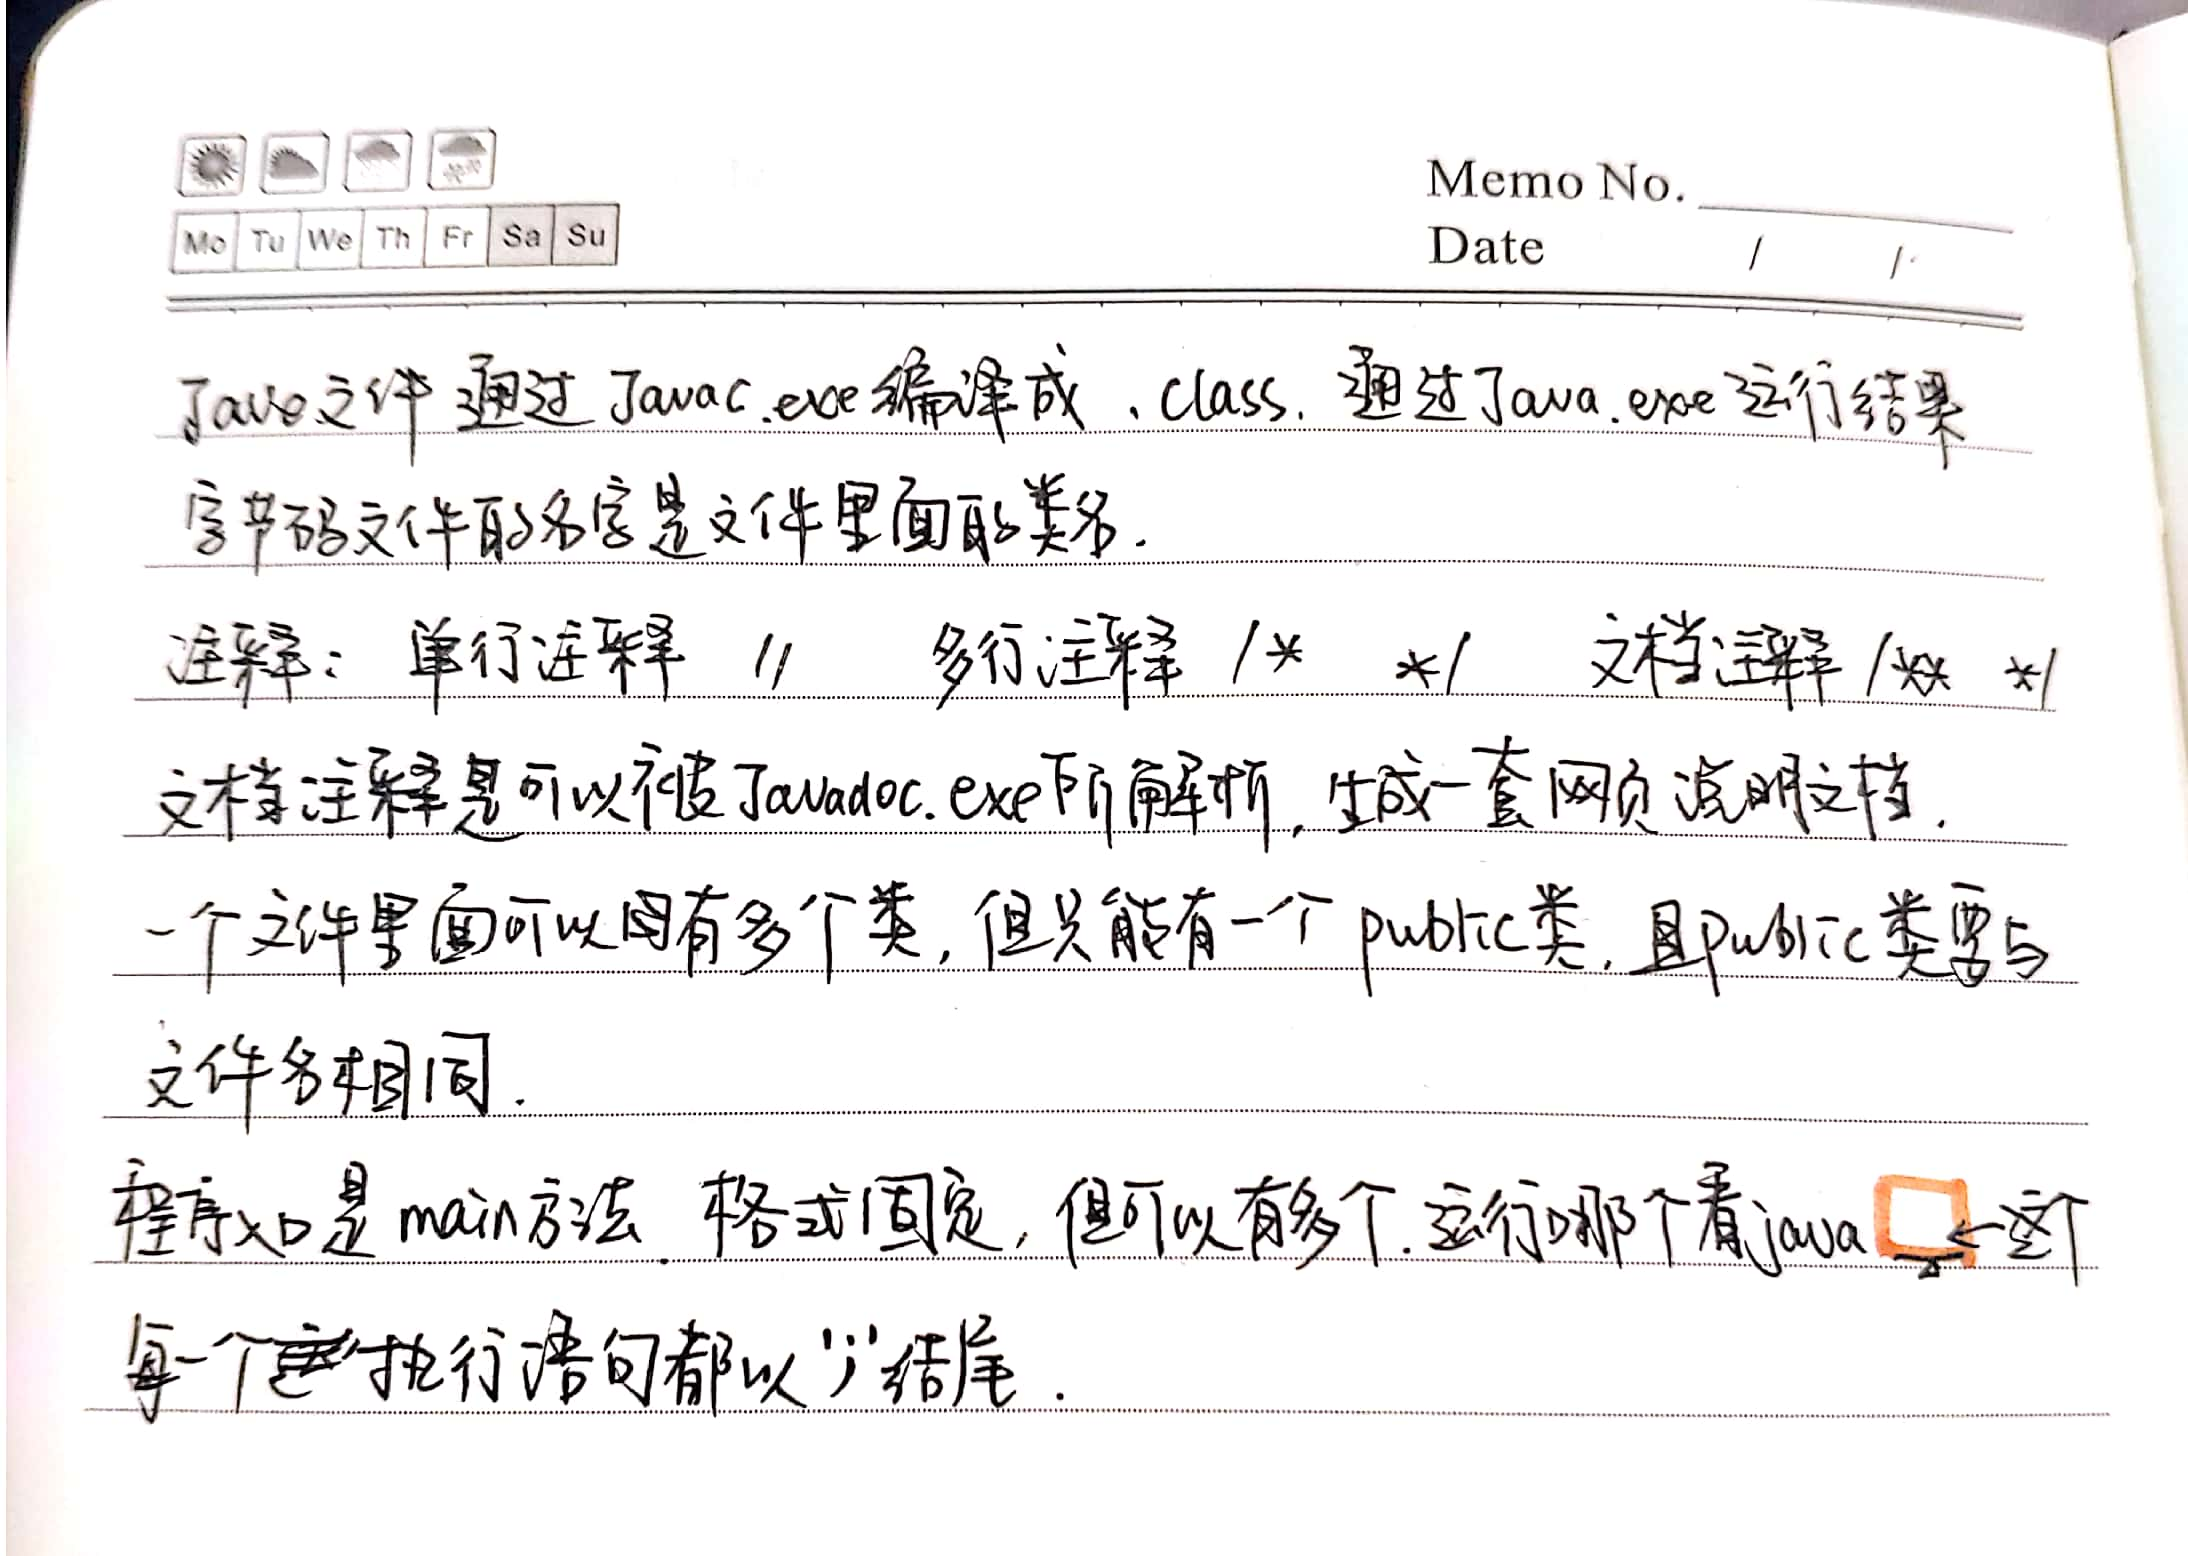 Mo Tu We Th Fr Sa Su
Memo No.
Date / /
Java文件通过Javac.exe编译成.class.通过Java.exe运行结果
字节码文件的名字是文件里面的类名.
注释: 单行注释 // 多行注释 /* */ 文档注释 /** */
文档注释是可以被Javadoc.exe所解析,生成一套网页说明文档.
一个文件里面可以同有多个类,但只能有一个public类,且public类要与
文件名相同.
程序入口是main方法.格式固定,但可以有多个.运行哪个看java ←这个
每一个执行语句都以";"结尾.